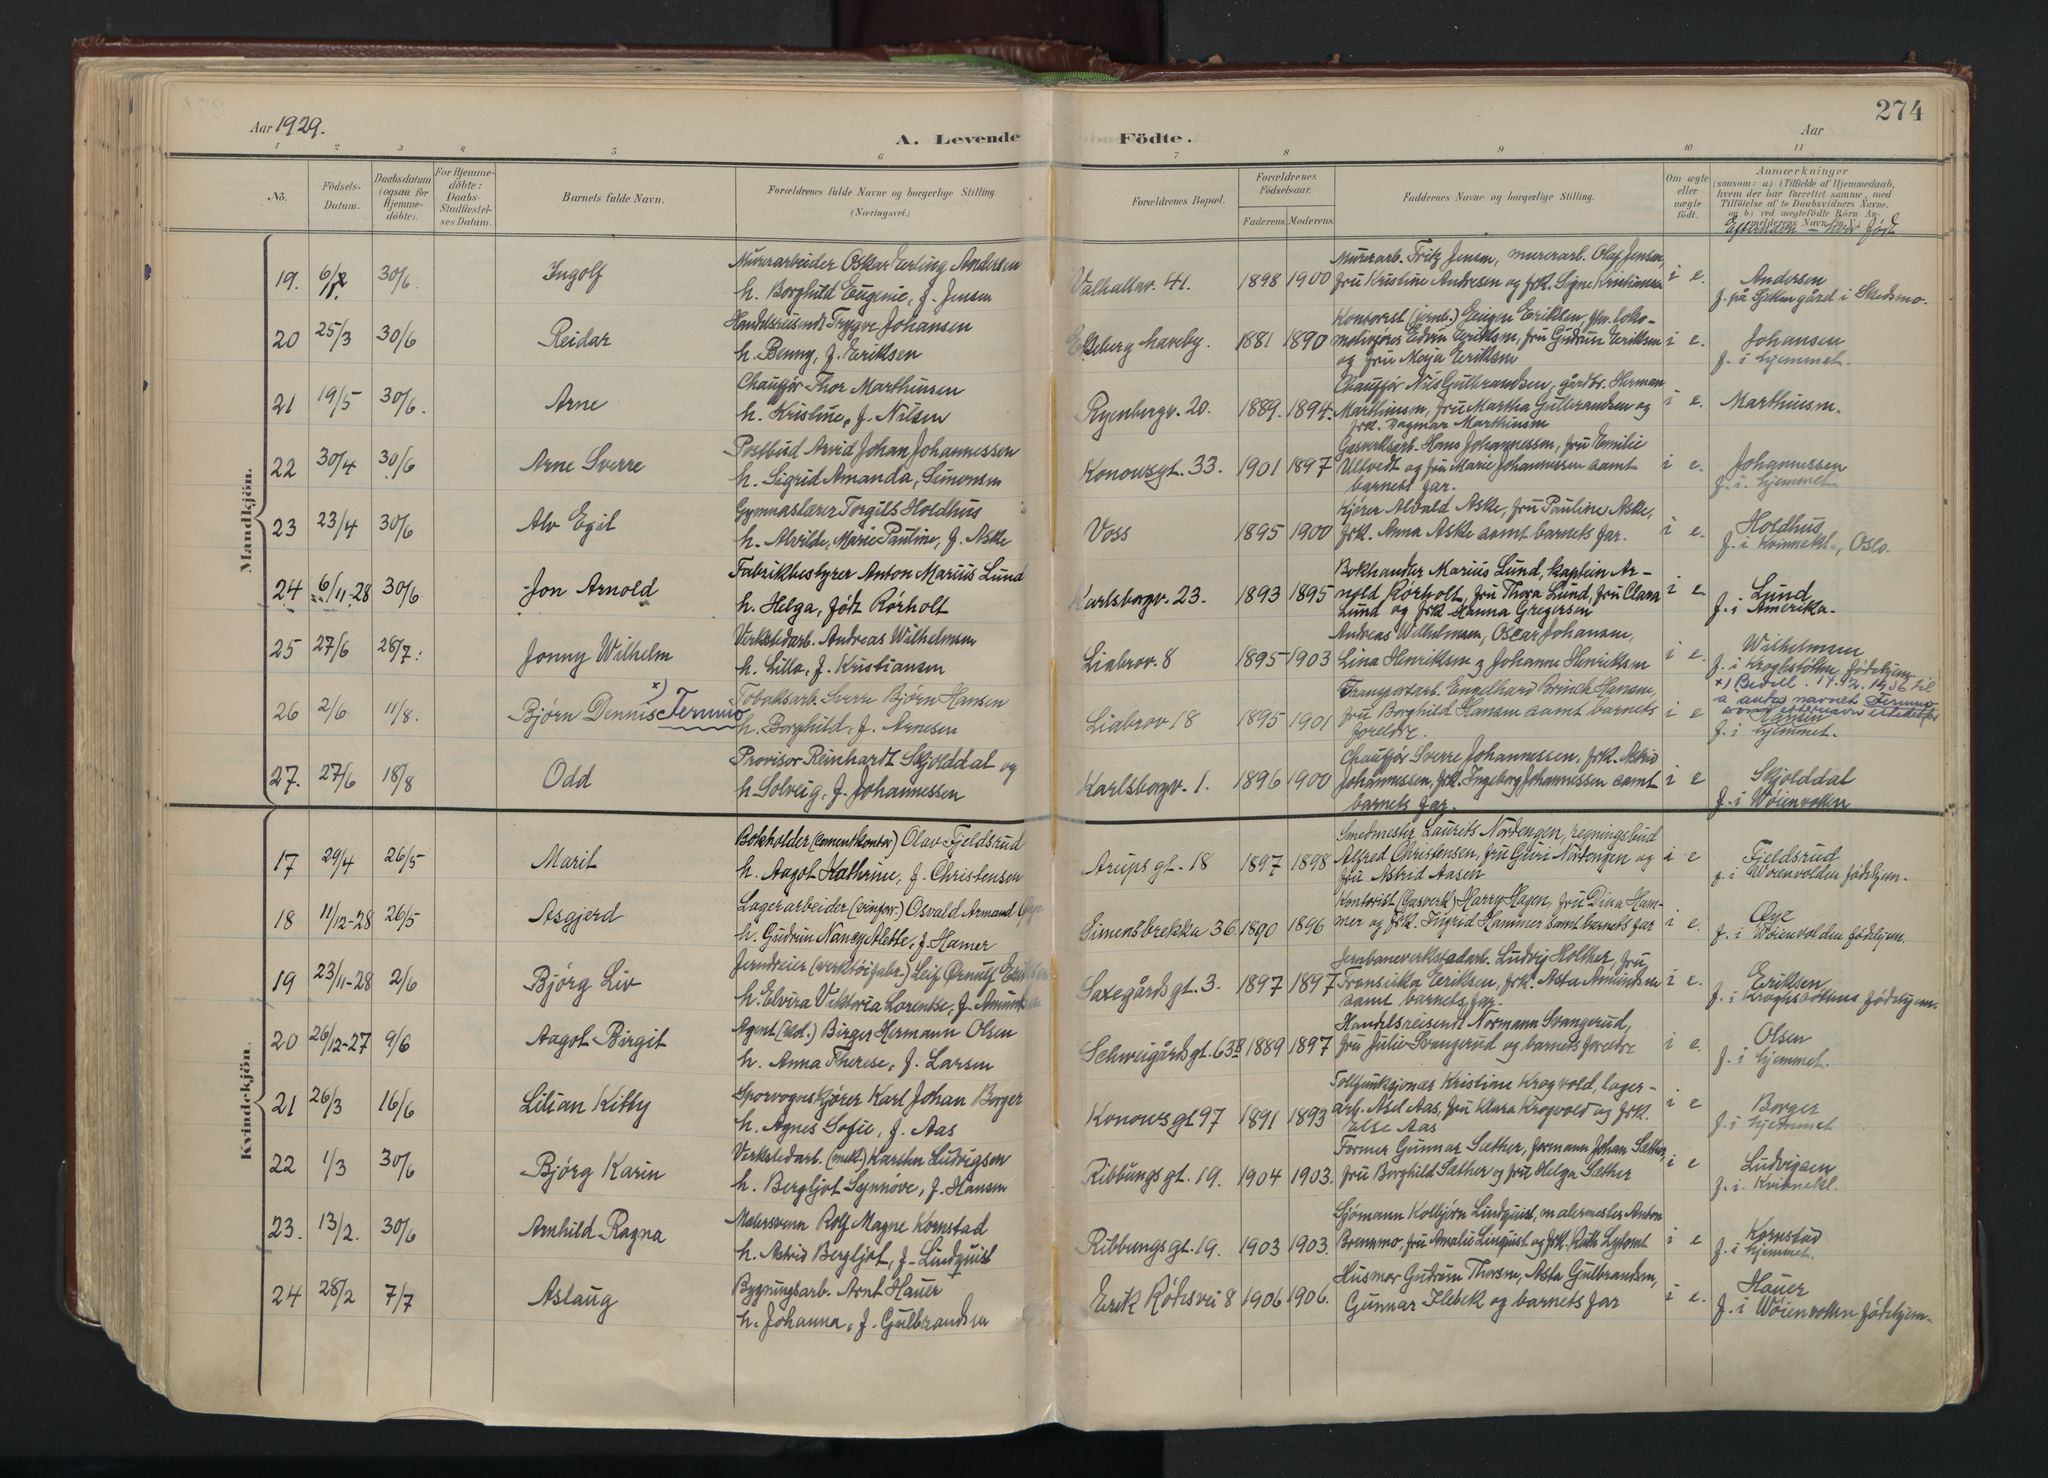 274
Aar 1929.
A. Levende Födte.
Aar
1 2 3 4 5 6 7 8 9 10 11
No.
Födsels-Datum.
Daabsdatum (ogsaa for Hjemme-döbte).
For Hjemme-döbte: Daabs-Stadfæstelses Datum.
Barnets fulde Navn.
Forældrenes fulde Navne og borgerlige Stilling. (Næringsvei.)
Forældrenes Bopæl.
Forældrenes Födselsaar.
Faderens. Moderens.
Faddernes Navne og borgerlige Stilling.
Om ægte eller uægte födt.
Anmærkninger
(saasom: a) i Tilfælde af Hjemmedaab, hvem der har forrettet samme, med Tilföielse af to Daabsvidners Navne, og b) ved uægtefödte Börn Anmelderens Navn m. V.)
Efternavn – hvor født
Mandkjön.
19. 30/6. Ingolf
Murerarbeider Oskar Erling Andersen
h. Borghild Eugenie, f. Jensen
Valhallav. 41. 1898 1900
Murerarb. Fritz Jensen, murerarb. Olaf Jensen,
fru Kristine Andresen og frk. Signe Kristiansen
i e.
Andersen
f. på gård i Skedsmo.
20 25/3 30/6 Reidar
Handelsreisende Trygve Johansen
h. Benny, f. Eriksen
Ekeberg haveby. 1881 1890
Kontorist (jernb.) Eugen Eriksen, fhv. loko-
motivfører Edvin Eriksen, fru Gudrun Eriksen
og fru Maja Eriksen
i e.
Johansen
f. i hjemmet.
21 19/5 30/6. Arne
Chauffør Thor Marthinsen
h. Kristine, f. Nilsen
Ryenbergv. 20. 1889. 1894.
Chauffør Nils Gulbrandsen, gårdbr. Herman
Marthinsen, fru Martha Gulbrandsen og
frk. Dagmar Marthinsen
i e.
Marthinsen.
22 30/4 30/6 Arne Sverre
Postbud Arvid Johan Johannessen
h. Sigrid Amanda, Simonsen
Konowsgt. 33. 1901 1897
Gasverksarb. Hans Johannessen, fru Emilie
Ultvedt og fru Marie Johannessen samt
barnets far.
i e.
Johannessen
f. i. hjemmet
23 23/4 30/6 Alv Egil
Gymnaslærer Torgils Holdhus
h. Alvilde, Marie Pauline, f. Aske
Voss 1895 1900
Kjører Aldvald Aske, fru Pauline Aske,
frk. Anna Aske samt barnets far.
i e.
Holdhus
f. i Kvinnekl., Oslo.
24 6/11-28 30/6 Jon Arnold
Fabrikbestyrer Anton Marius Lund
h. Helga, født Rørholt
Karlsborgv. 23. 1893 1895
Bokhandler Marius Lund, kaptein Ar-
nold Rørholt, fru Thora Lund, fru Clara
Lund og frk Hanna Gregersen
i e.
Lund
f. i Amerika.
25 27/6 28/7. Jonny Wilhelm
Verkstedarb. Andreas Wilhelmsen
h. Lilla, f. Kristiansen
Liabrov. 8 1895 1903
Andreas Wilhelmsen, Oscar Johansen,
Lina Henriksen og Johanne Henriksen
i e.
Wilhelmsen
f. i Kroghstøtten fødehjem
26 2/6 11/8. Bjørn Dennis x) Fermino
Tobaksarb. Sverre Bjørn Hansen
h. Borghild, f. Arnesen
Liabrov 18 1895 1901
Transportarb. Engelhard Brinch Hansen,
fru Borghild Hansen samt barnets
foreldre.
i e
navnet
Hansen
f. i hjemmet.
27. 27/6 18/8 Odd
Provisor Reinhardt Skjolddal og
h Solveig, f. Johannessen
Karlsborgv. 1. 1896 1900
Chauffør Sverre Johannessen, frk. Astrid
Johannessen, frk. Ingeborg Johannessen samt
barnets far.
i e
Skjolddal
f. i Wøienvolden
Kvindekjön.
17 29/4 26/5 Marit
Bokholder (cementkontor) Olav Fjeldsrud
h. Aagot Kathrine, f. Christensen
Arups gt. 18 1897 1898
Smedmester Laurits Nordengen, regningsbud
Alfred Christensen, fru Guri Nordengen og
fru Astrid Aasen
i e
Fjeldsrud
f. i Wøienvolden fødehjem.
18 11/12-28 26/5 Asgjerd
Lagerarbeider (vinforr.) Osvald Armand Øye
h. Gudrun Nancy Alette, f. Hamer
Simensbrekka 36. 1890 1896
Kontorist (Gasverk) Harry Hagen, fru Dina Ham-
mer og frk. Ingrid Hammer samt barnets far
i e.
Øye
f. i Wøienvolden fødehjem.
19 23/11-28 2/6 Bjørg Liv
Jerndreier (verktøifabr.) Leif Ørnulf Eriksen
h. Elvira Viktoria Lorentse, f. Amundsen
Saxegårdsgt. 3. 1897 1897
Jernbaneverkstadarb. Ludvig Holther, fru
Fransiska Eriksen, frk. Asta Amundsen
samt barnets far.
i e.
Eriksen
f. i Kroghstøttens fødehjem.
20 26/12-27 9/6 Aagot Birgit
Agent Birger Hermann Olsen
h. Anna Therese, f. Larsen
Schweigårdsgt. 63B 1889 1897
Handelsreisende Normann Svangerud,
fru Julie Svangerud og barnets foreldre
i e.
Olsen
f. i hjemmet.
21 26/3 16/6 Lilian Kitty
Sporvognskjører Karl Johan Borger
h. Agnes Sofie, f. Aas
Konowsgt 97 1891 1893
Tollfunksjonær Kristian Krogvold, lager-
arb. Axel Aas, fru Klara Krogvold og frk.
Else Aas
i e
Borger
f. i hjemmet
22 1/3 30/6 Bjørg Karin
Verkstedarb. (mek.) Karsten Ludvigsen
h. Bergljot Synnøve, f. Hansen
Ribbungsgt. 19. 1904 1903.
Former Gunnar Sæther, formann Johan Sæther,
fru Borghild Sæther og fru Helga Sæther
i e
Ludvigsen
f. i. Kvinnekl.
23. 13/2. 30/6 Arnhild Ragna
Malersvenn Rolf Magne Kornstad
h. Astrid Bergljot, f. Lindquist
Ribbungsgt. 19. 1903 1903.
Sjømann Kolbjørn Lindquist, malermester Anton
Bremmo, fru Amalie Linquist og frk. Ruth
i e
Kornstad
f. i hjemmet.
24 28/2 7/7 Aslaug
Bygningsarb. Arnt Hauer
h. Johanna, f. Gulbrandsen
Erik Rødesvei 8 1906 1906.
Husmor Gudrun Thorsen, Asta Gulbrandsen,
Gunnar Ilebek og barnets far
i e.
Hauer
f. i Wøienvolden fødehjem.